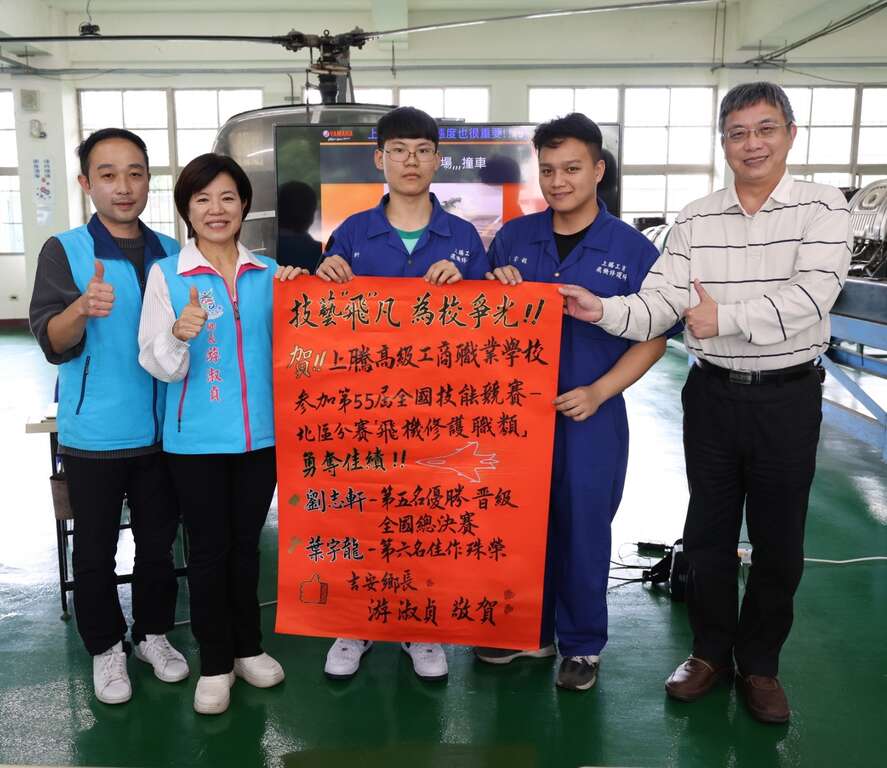 YAMAHA
態度也很重要!!
場,,,撞車
上騰工商
飛機修護科
上騰工商
飛機修護科
游淑貞
技藝"飛"凡 為校爭光!!
賀!! 上騰高級工商職業學校
參加第55屆全國技能競賽-
北區分賽「飛機修護職類」
勇奪佳績!!
劉志軒-第五名優勝-晉級
全國總決賽
葉宇龍-第六名佳作殊榮
吉安鄉長
游淑貞 敬賀